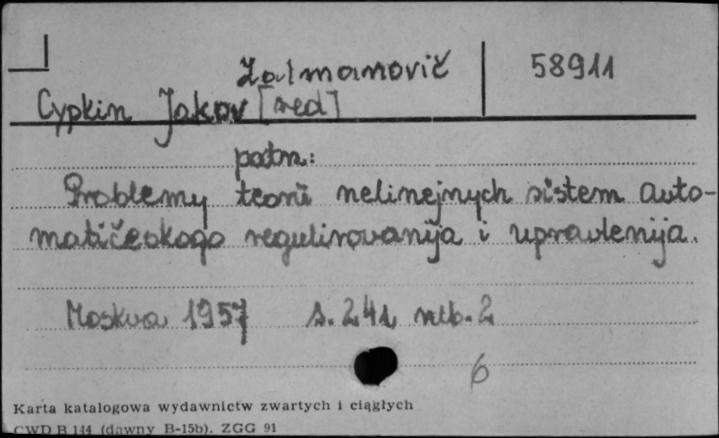 Zalmanovič 58911
Cypkin Jakov [red]
patrz:
Problemy teorii nelinejnych sistem avto-
matičeskogo regulirovanija i upravlenija.
Moskva 1957 s. 241, nlb. 2
6
Karta katalogowa wydawnictw zwartych i ciągłych
CWD B 144 (dawny B-15b). ZGG 91